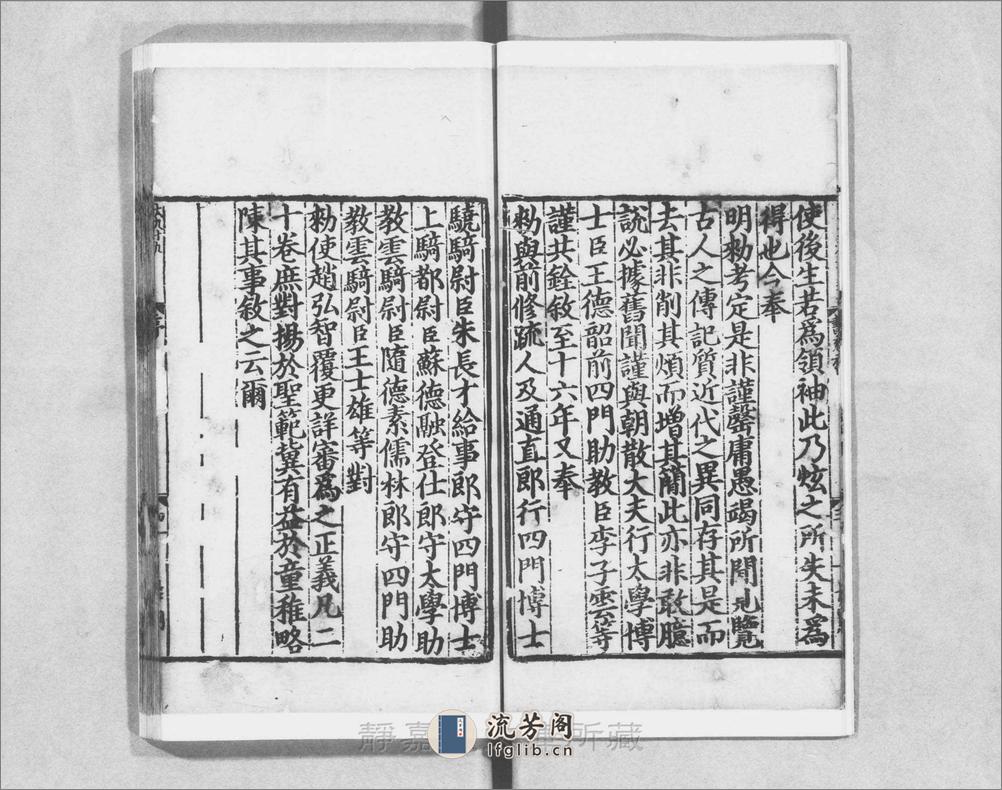 使後生若爲領袖此乃炫之所失未爲
得也今奉
明勑考定是非謹罄庸愚竭所聞見覽
古人之傳記質近代之異同存其是而
去其非削其煩而增其簡此亦非敢臆
說必據舊聞謹與朝散大夫行太學博
士臣王德韶前四門助教臣李子雲等
謹共銓敘至十六年又奉
勑與前修疏人及通直郎行四門博士
驍騎尉臣朱長才給事郎守四門博士
上騎都尉臣蘇德融登仕郎守太學助
教雲騎尉臣隨德素儒林郎守四門助
教雲騎尉臣王士雄等對
勑使趙弘智覆更詳審爲之正義凡二
十卷庶對揚於聖範冀有益於童稚略
陳其事敘之云爾
靜嘉 所藏
流芳阁
lfglib.cn